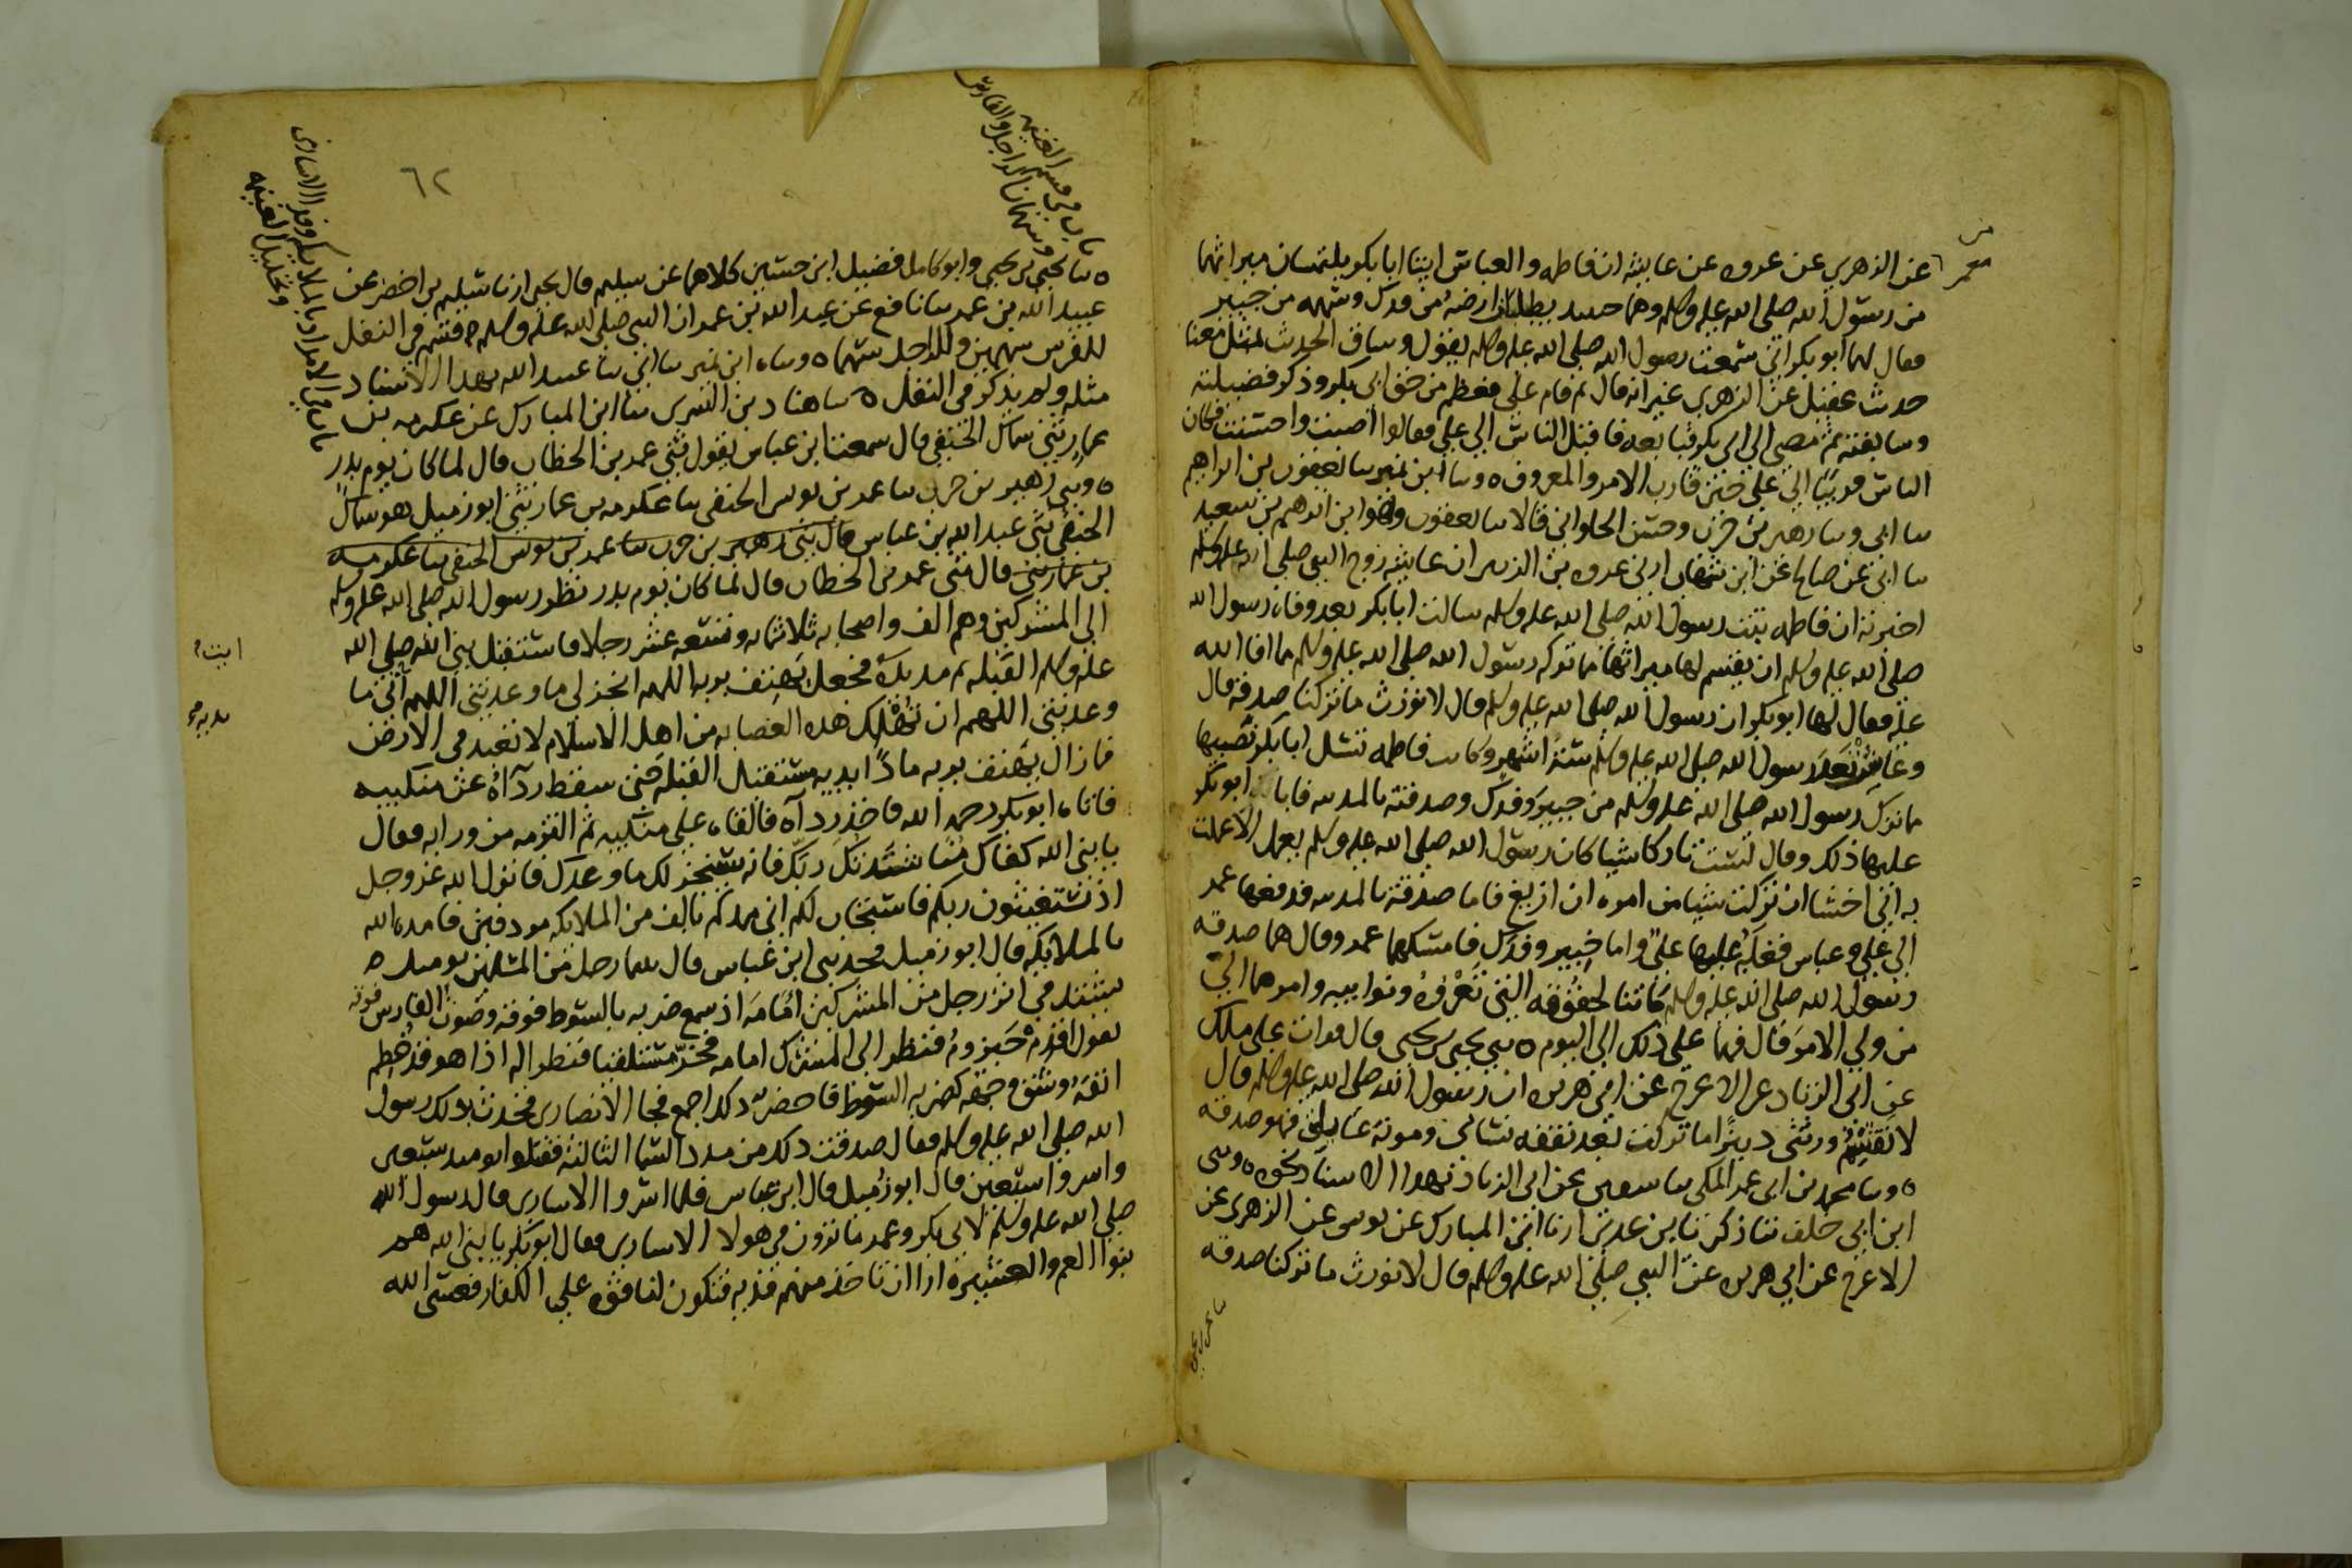 معمر
عن الزهري عن عروه عن عايشه ان فاطمه والعباس اتيا ابا بكر يلتمسان ميراثهما
من رسول الله صلى الله عليه وسلم وهما حينيد يطلبان ارضه من فدك وسهمه من خيبر
فقال لهما ابو بكر اني سمعت رسول الله صلى الله عليه وسلم يقول وساق الحديث بمثل معنا
حديث عقيل عن الزهري غير انه قال ثم قام علي فعظم من حق ابي بكر وذكر فضيلته
وسابقته ثم مضى الى ابي بكر فبايعه فاقبل الناس الى علي فقالوا اصبت واحسنت فكان
الناس قريبا الى علي حين قارب الامر والمعروف ٥ وسا ابن نمير سا يعقوب بن ابراهيم
سا ابي وسا زهير بن حرب وحسن الحلواني قالا سا يعقوب وهو ابن ابرهيم بن سعيد
سا ابي عن صالح عن ابن شهاب ارني عروه بن الزبير ان عايشه زوج النبي صلى الله عليه وسلم
اخبرته ان فاطمه بنت رسول الله صلى الله عليه وسلم سالت ابا بكر بعد وفاة رسول الله
صلى الله عليه وسلم ان يقسم لها ميراثها مما تركه رسول الله صلى الله عليه وسلم مما افا الله
عليه فقال لها ابو بكر ان رسول الله صلى الله عليه وسلم قال لا نورث ما تركنا صدقه قال
وعاشت بعد رسول الله صلى الله عليه وسلم ستة اشهر وكانت فاطمه تسل ابا بكر نصيبها
مما ترك رسول الله صلى الله عليه وسلم من خيبر وفدك وصدقته بالمدينه فابا ابو بكر
عليها ذلك وقال لست تاركا شيا كان رسول الله صلى الله عليه وسلم يعمل الا عملت
به اني اخشا ان تركت شيا من امره ان ازيغ فاما صدقته بالمدينه فدفعها عمر
الى علي وعباس فغلبه عليها علي واما خيبر وفدك فامسكهما عمر وقال هما صدقه
رسول الله صلى الله عليه وسلم كانتا لحقوقه التي تعروه ونوايبه وامرهما الي
من ولي الامر قال فهما على ذلك الى اليوم ٥ ثني يحيى بن يحيى قال قرات على ملك
عن ابي الزناد عن الاعرج عن ابي هريره ان رسول الله صلى الله عليه وسلم قال
لا يقتسم ورثتي دينرا ما تركت بعد نفقه نسائي ومونة عاملي فهو صدقه
٥ وسا محمد بن ابي عمر المكي سا سفين عن ابي الزناد بهذا الاسناد نحوه ٥ وثني
ابن ابي خلف ثنا زكريا بن عدي ارنا ابن المبارك عن يونس عن الزهري عن
الاعرج عن ابي هريره عن النبي صلى الله عليه وسلم قال لا نورث ما تركنا صدقه
سا يحيى بن يحيى
٦٢
باب في قسم الغنيمه
وسهمان الراجل والفارس
باب في الامداد بالملايكه وفدا الاسارى
وتحليل الغنيمه
٥ سا يحيى بن يحيى وابو كامل فضيل ابن حسين كلاهما عن سليم قال يحيى ارنا سليم بن اخضر عن
عبيد الله بن عمر سا نافع عن عبد الله بن عمر ان النبي صلى الله عليه وسلم قسم في النفل
للفرس سهمين وللراجل سهما ٥ وساه ابن نمير سا ابي سا عبيد الله بهذا الاسناد
مثله ولم يذكر في النفل ٥ سا هناد بن السري سا ابن المبارك عن عكرمه بن
عمار ثني سماك الحنفي قال سمعت ابن عباس يقول ثني عمر بن الخطاب قال لما كان يوم بدر
٥ وثني زهير بن حرب سا عمر بن يونس الحنفي سا عكرمه بن عمار ثني ابو زميل هو سماك
الحنفي ثني عبد الله بن عباس قال ثني زهير بن حرب سا عمر بن يونس الحنفي سا عكرمه
بن عمار ثني قال ثني عمر بن الخطاب قال لما كان يوم بدر نظر رسول الله صلى الله عليه وسلم
الى المشركين وهم الف واصحابه ثلاثمايه وتسعه عشر رجلا فاستقبل نبي الله صلى الله
عليه وسلم القبله ثم مد يده فجعل يهتف بربه اللهم انجز لي ما وعدتني اللهم اتي ما
وعدتني اللهم ان تهلك هذه العصابه من اهل الاسلام لا تعبد في الارض
فما زال يهتف بربه مادا يديه مستقبل القبله حتى سقط رداؤه عن منكبيه
فاتاه ابو بكر رحمه الله فاخذ رداه فالقاه على منكبيه ثم التزمه من ورايه فقال
يا نبي الله كفاك مناشدتك ربك فانه سينجز لك ما وعدك فانزل الله عز وجل
اذ تستغيثون ربكم فاستجاب لكم اني ممدكم بالف من الملايكه مردفين فامده الله
بالملايكه قال ابو زميل فحدثني ابن عباس قال بينما رجل من المسلمين يوميد
يشتد في اثر رجل من المشركين امامه اذ سمع ضربه بالسوط فوقه وصوت الفارس فوقه
يقول اقدم حيزوم فنظر الى المشرك امامه فخر مستلقيا فنظر اليه اذا هو قد خطم
انفه وشق وجهه كضربه السوط فاخضر ذلك اجمع فجا الانصاري فحدث بذلك رسول
الله صلى الله عليه وسلم فقال صدقت ذلك من مدد السما الثالثه فقتلوا يوميد سبعين
واسروا سبعين قال ابو زميل قال ابن عباس فلما اسروا الاسارى قال رسول الله
صلى الله عليه وسلم لابي بكر وعمر ما ترون في هولا الاسارى فقال ابو بكر يا نبي الله هم
بنوا العم والعشيره ارا ان تاخذ منهم فديه فتكون لنا قوه على الكفار فعسى الله